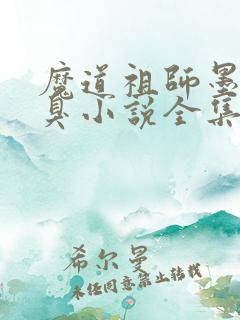 魔道祖师墨
臭小说全集
希尔曼
未经同意禁止转载